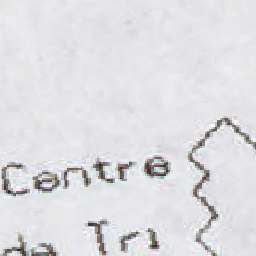 Centre
de Tri